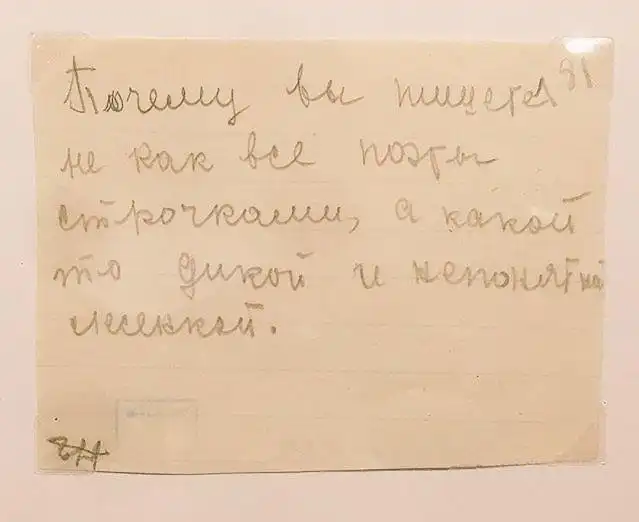 Почему вы пишете 81
не как все поэты
строчками, а какой
то дикой и непонятной
лесенкой.